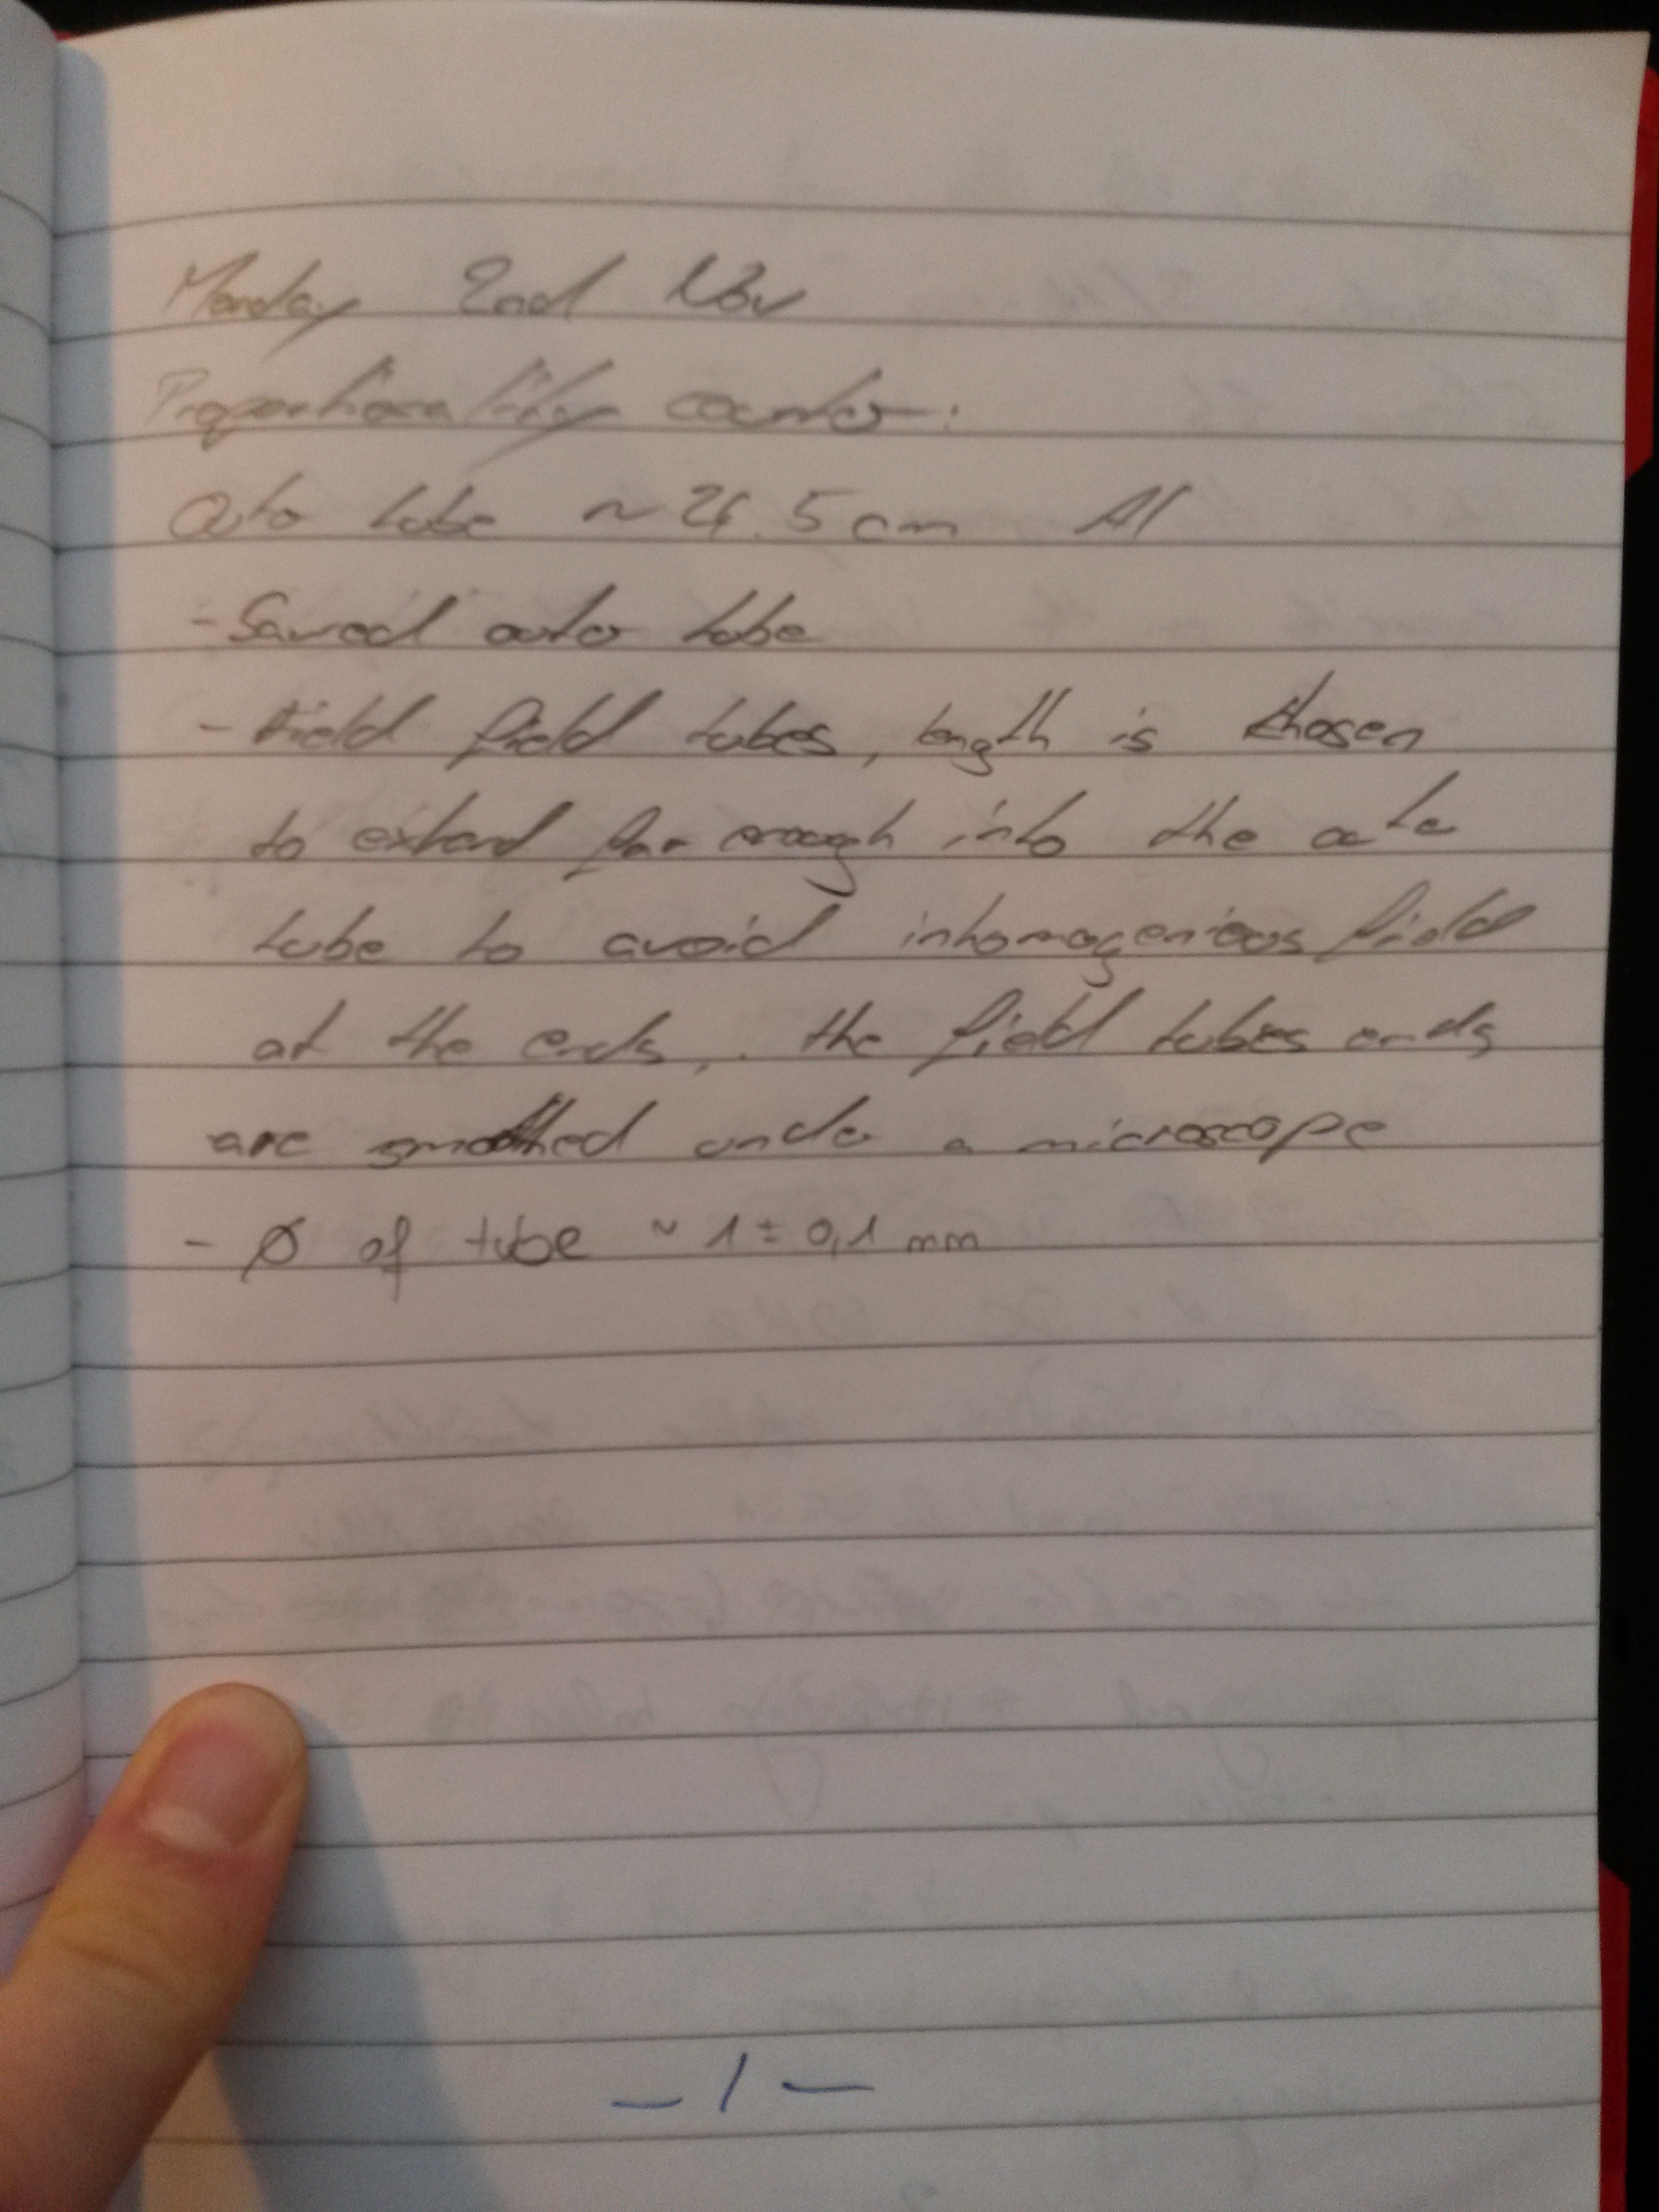 Monday 2nd Nov
Proportionality counter:
Outer tube ~ 26.5 cm Al
- Sawed outer tube
- field tubes, length is chosen
to extend far enough into the outer
tube to avoid inhomogenious field
at the ends, . the field tubes ends
are smoothed under a microscope
- Ø of tube ~ 1 ± 0,1 mm
- 1 -